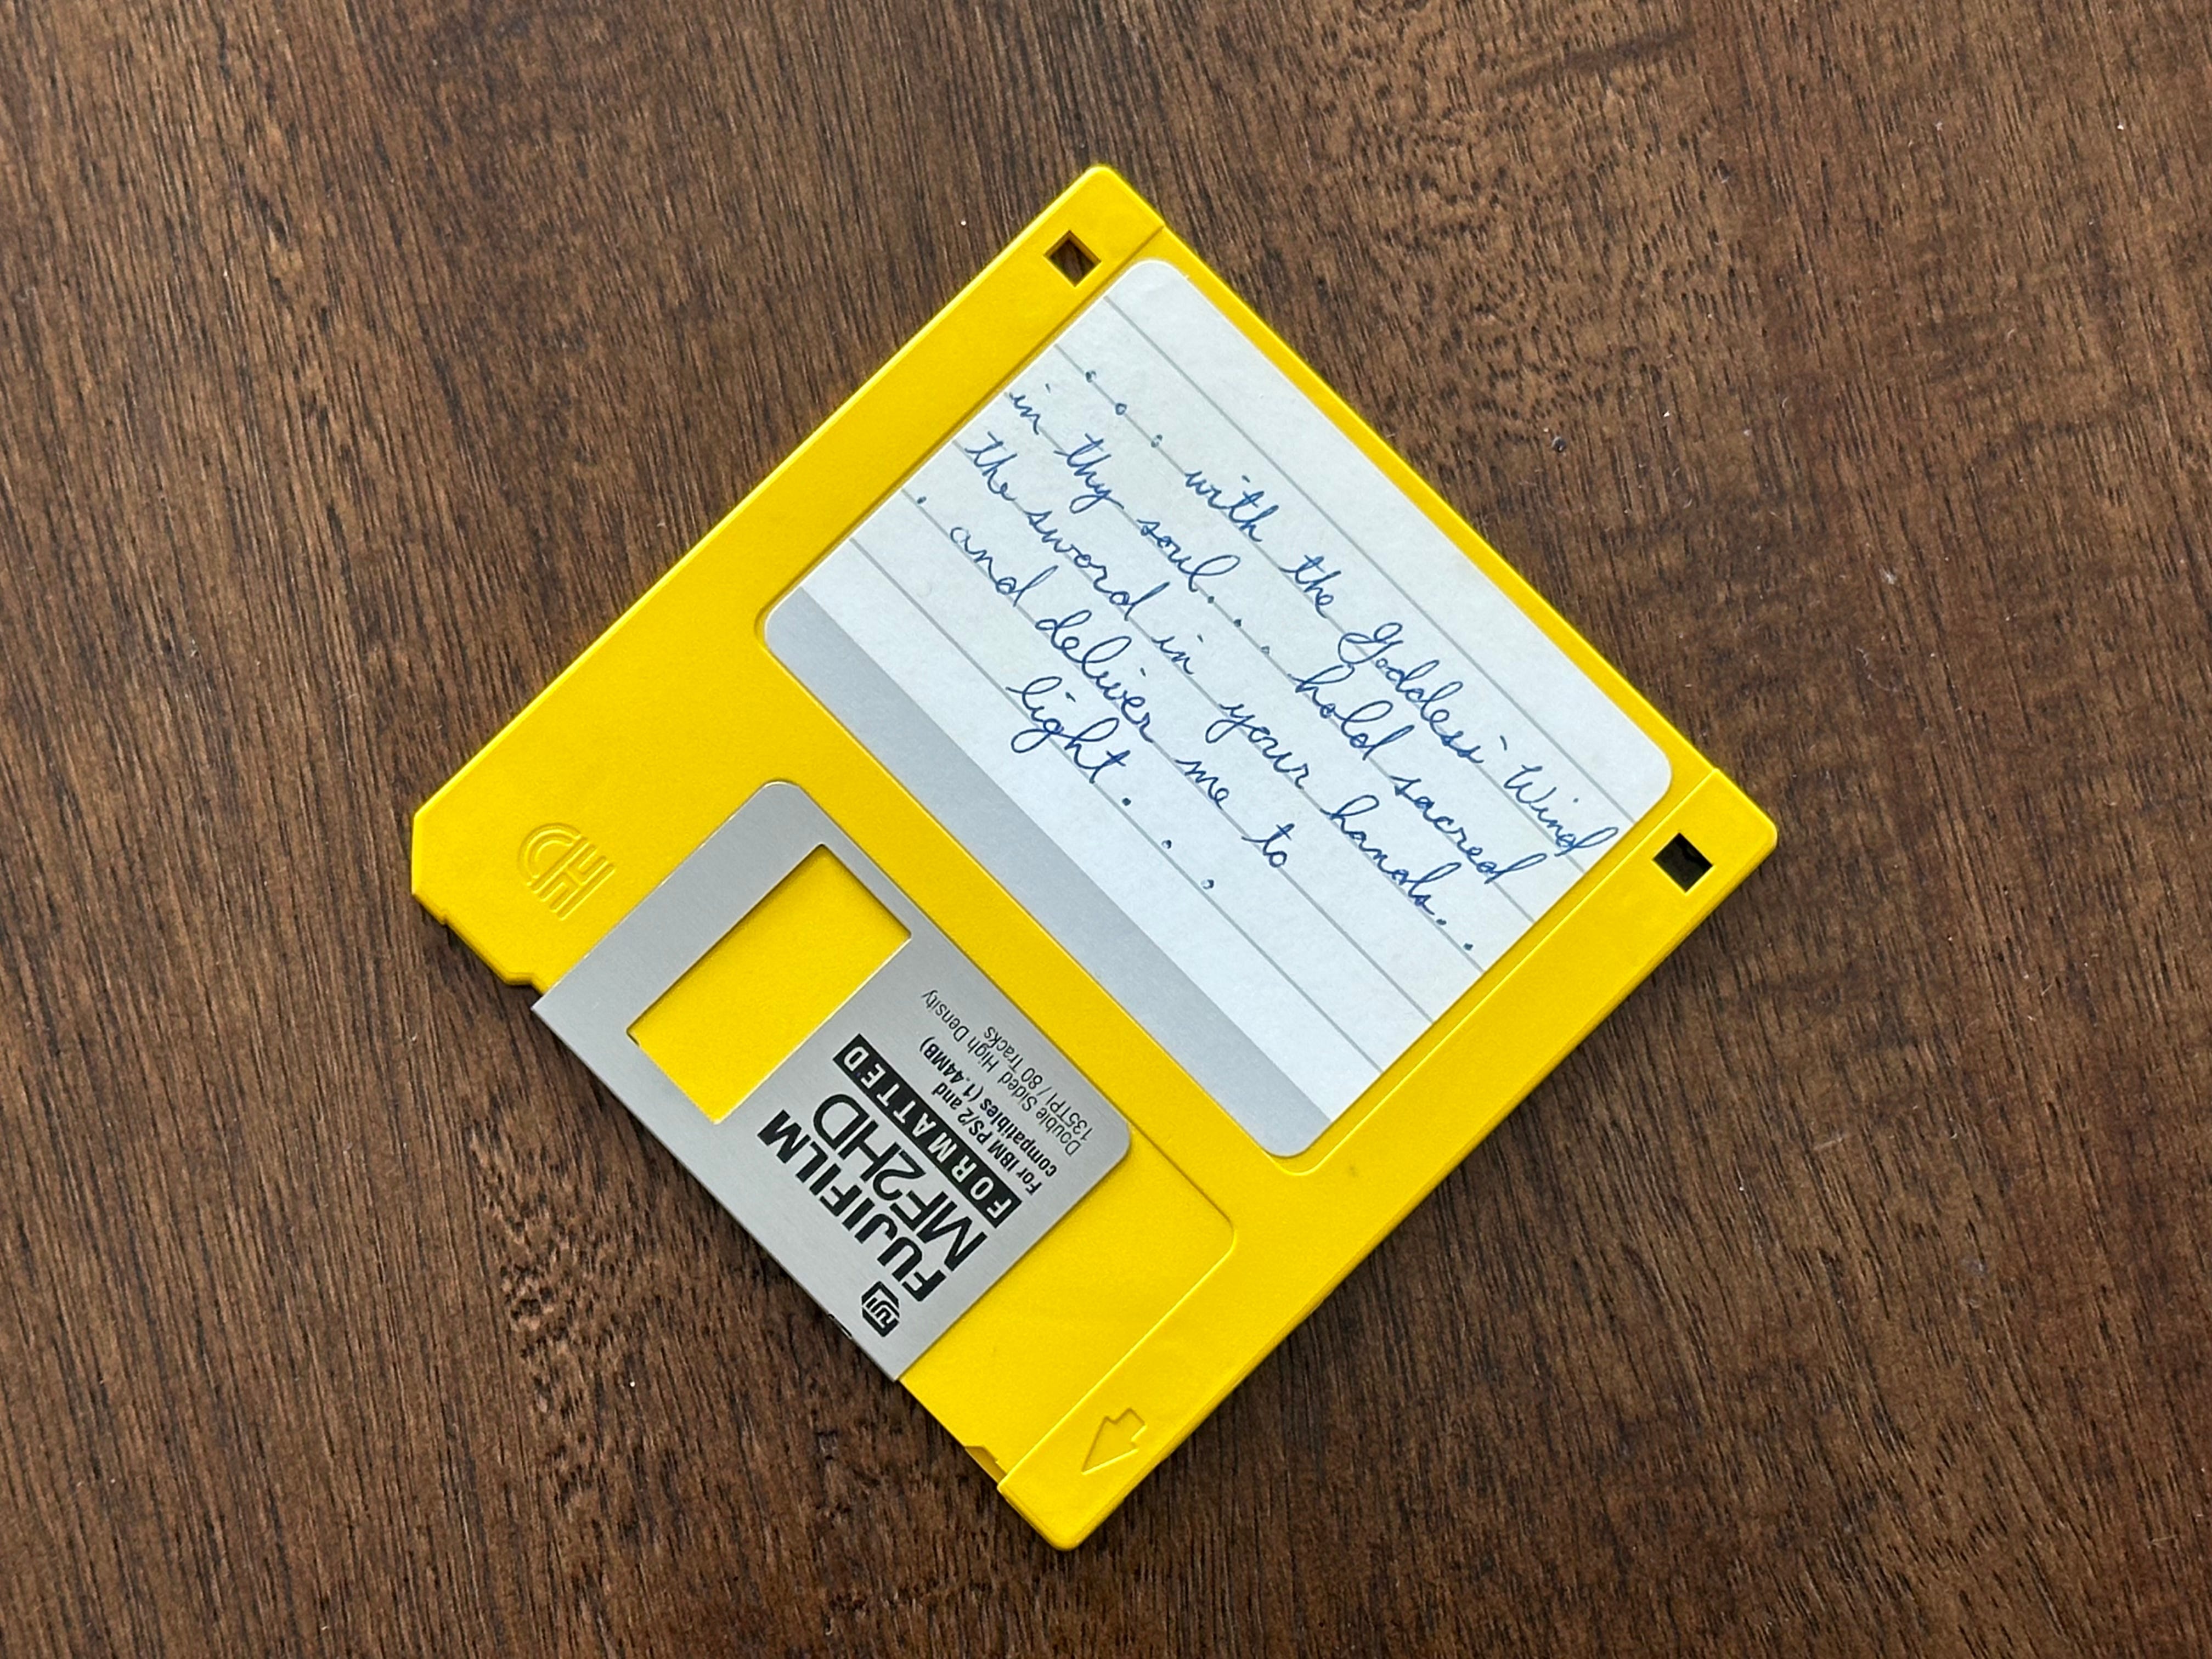 ... with the Goddess' Wind
in thy soul... hold sacred
the sword in your hands..
. and deliver me to
light...
HD
FUJI
FUJIFILM
MF2HD
FORMATTED
For IBM PS/2 and
compatibles (1.44MB)
Double Sided High Density
135TPI / 80 Tracks